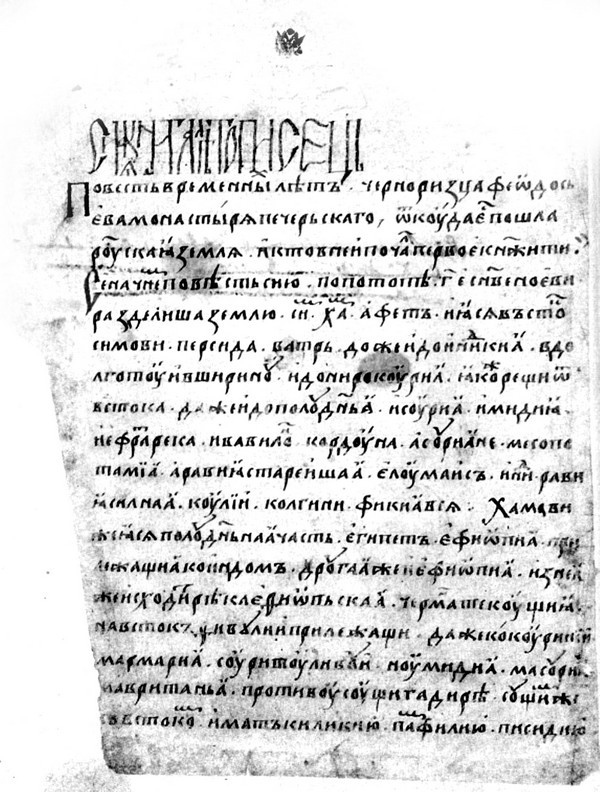 КНИГА ЛѢТОПИСЕЦЬ
Повесть временны лѣтъ · черноризца феѡдось
ева монастырѧ печерьскаго, ѿкоуда ест пошла
роускаꙗ землѧ · и кто в неи поча первое кнѧжити ·
Се начнем повѣсть сию · по потопѣ · г҃ е сн҃ве ноеви
разделиша землю · си · ха · афетъ · и ꙗсѧ въсто
симови · персида · ватрь доже и до инъдикиꙗ · в до
лготоу и в ширину и до нирокоуриа · ꙗкоже рещи ѿ
въстока · даже и до полоудньꙗ · и соуриа · и мидиꙗ ·
и ефрат река · и вавило · кордоуна · асуриане · месопо
тамїа · аравиꙗ стареишаа · елоумаисъ · инди · рави
ꙗ силнаа · коулїи · колгини · фикиа всѧ · Хамови
же ꙗсѧ полудньнаꙗ часть · египетъ · ефиѡпиа · при
лежащиа ко индом · другаа же ефиѡпиа · из неа
же исходит рѣка ефиѡпьскаа · чермнаа текоущиа
на въстокъ, ливуи прилежащи · даже ко коуринии
мармариа · соурит оу ливуи · ноумидиа · масориꙗ
мавританьа · противоу соущи гадирѣ · сущим же
къ въстоком · имать киликию памфилию · писидию